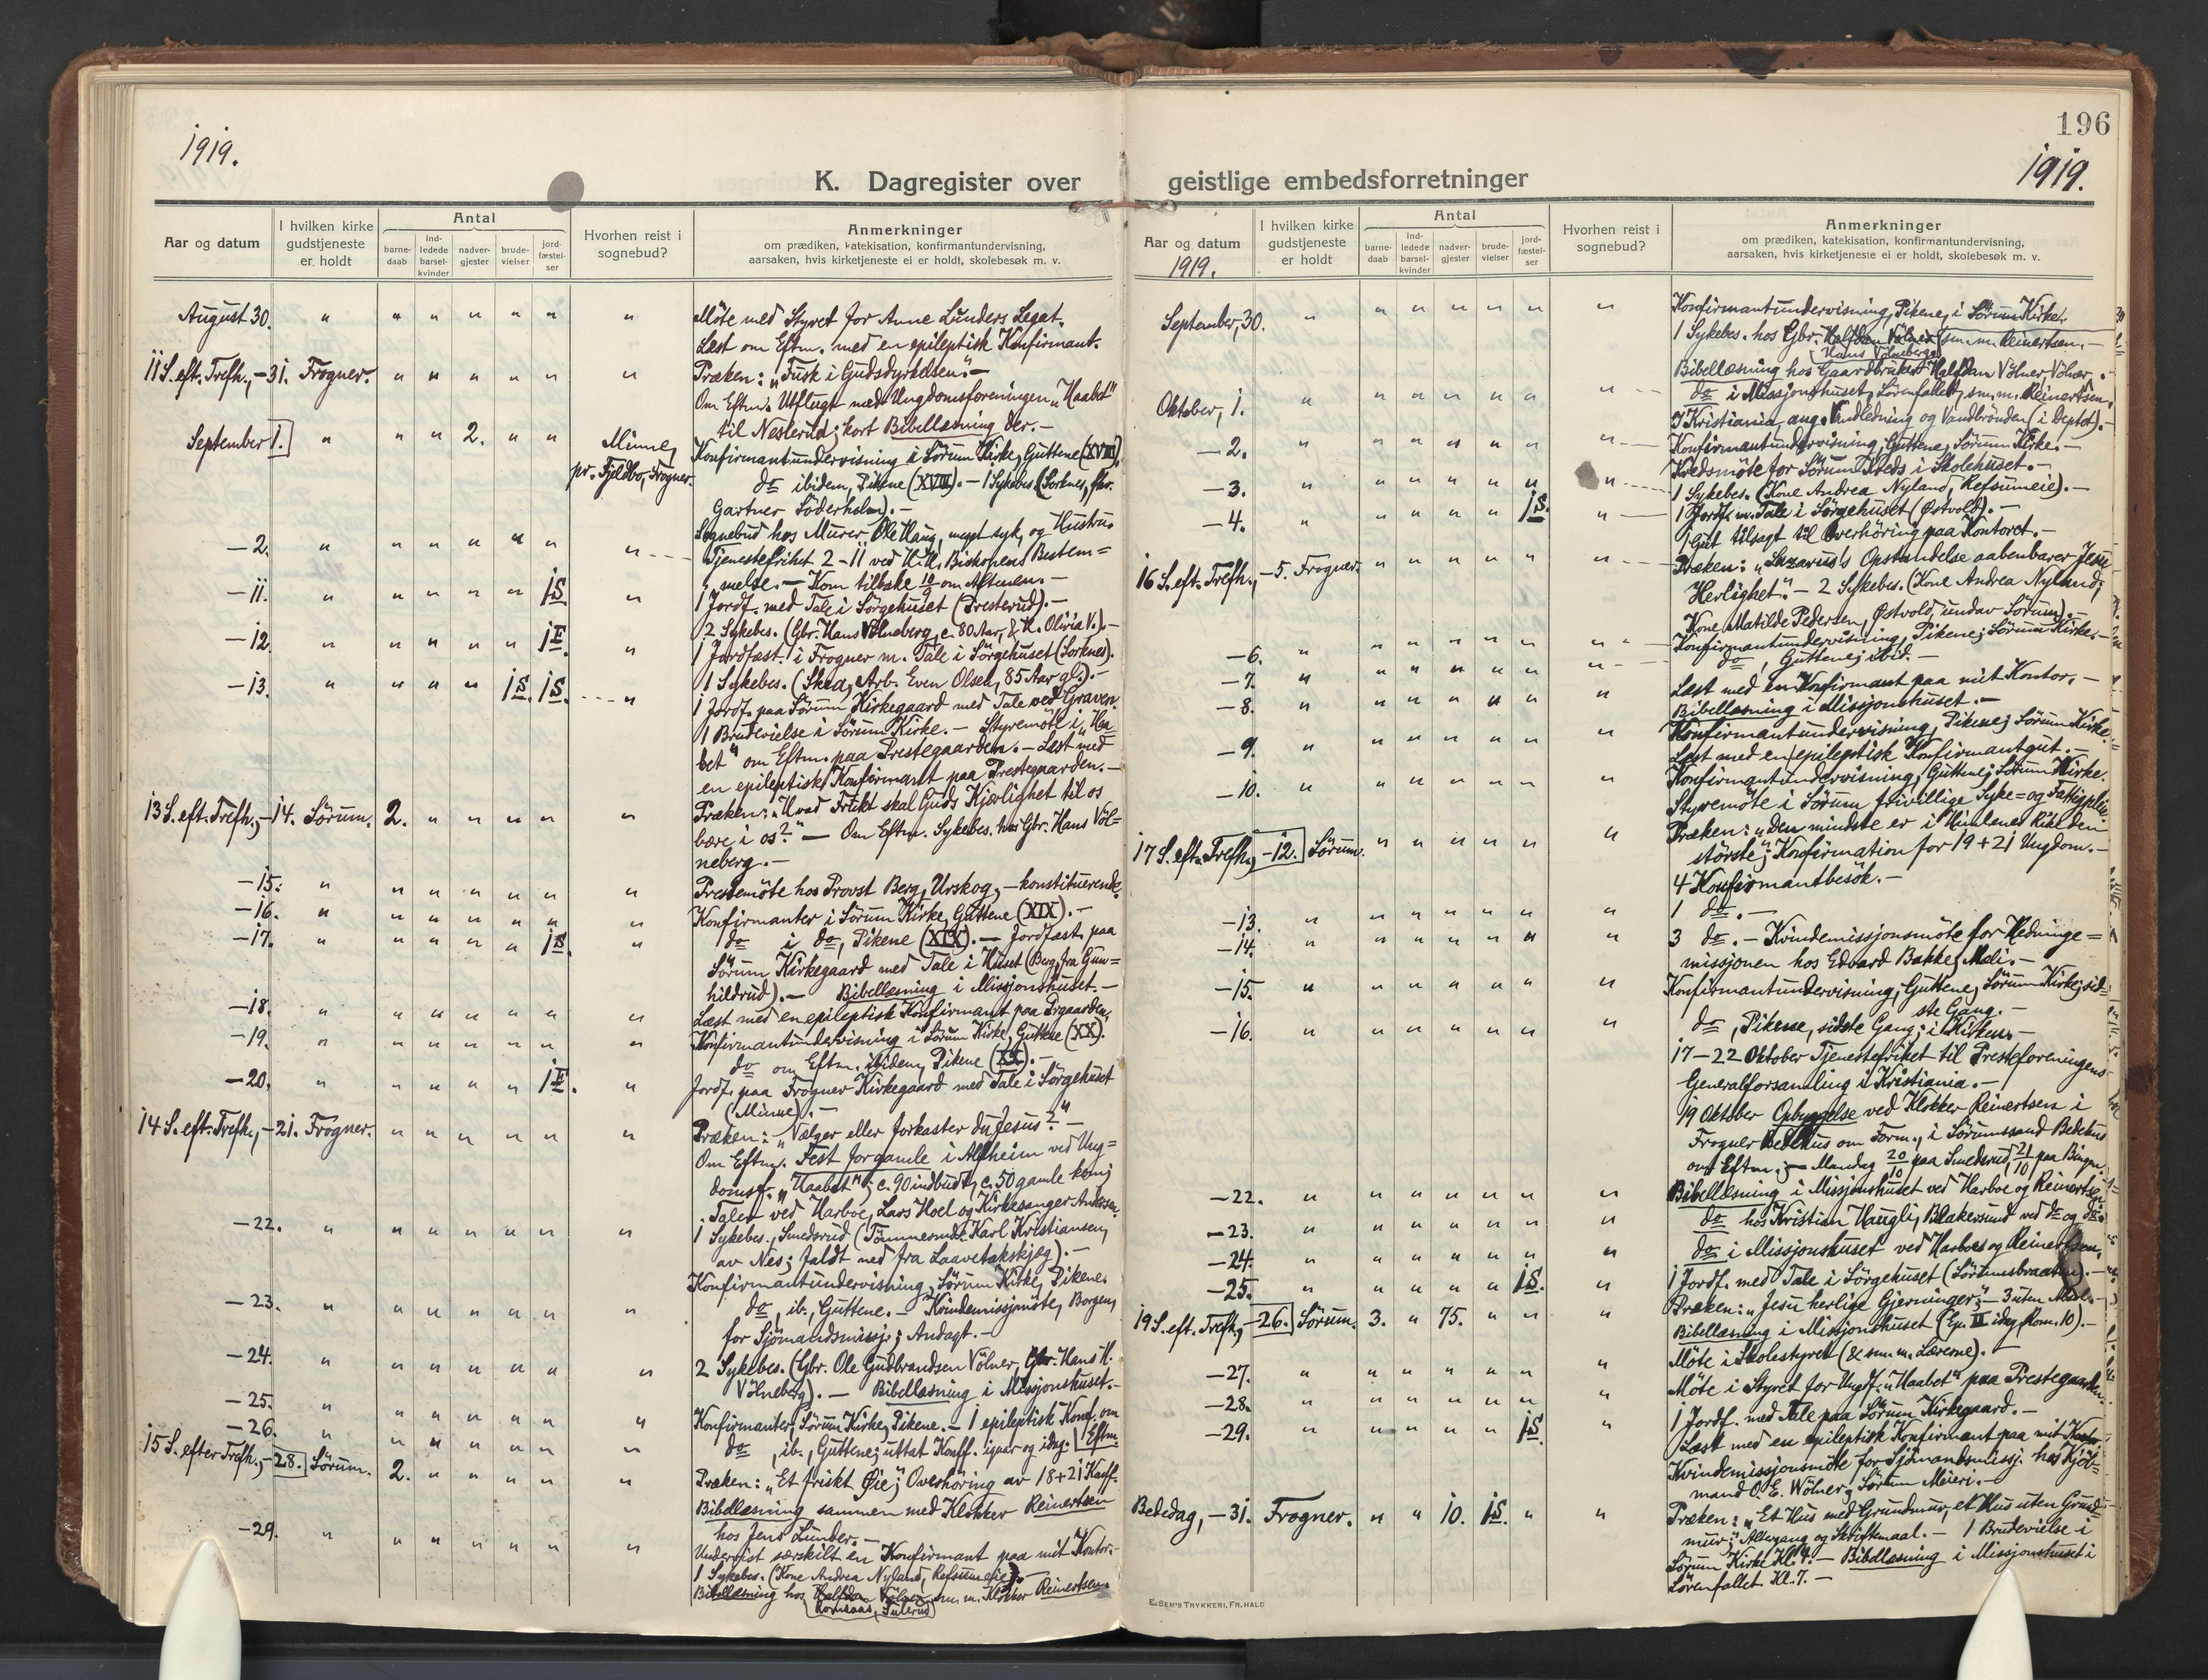 1919.
K. Dagregister over
Aar og datum
I hvilken kirke gudstjeneste er holdt
Antal
barne-daab
ind-ledede barsel-kvinder
nadver-gjester
brude-vielser
jord-fæstel-ser
Hvorhen reist i sognebud?
Anmerkninger
om prædiken, katekisation, konfirmantundervisning,
aarsaken, hvis kirketjeneste ei er holdt, skolebesøk m. v.
August 30. " " " " " " " Möte med Styret for Anne Lunders Legat.
Læst om Eftm. med en epileptisk Konfirmant.
11 S. eft. Trefh., - 31. Frogner. " " " " " " Præken: „Fusk i Gudsdyrkelsen". -
Om Eftm. Utflugt med Ungdomsforeningen „Haabet"
til Neslerud; kort Bibellæsning der. -
September 1. " " " 2. " " Minne, pr. Fjeldbo, Frogner. Konfirmantundervisning i Sörum Kirke, Guttene (XVIII).
do ibidem, Pikene (XVIII). - 1 Sykebes. (Sorknes, fhv.
Gartner Söderholm). -
Sognebud hos Murer Ole Haug, meget syk, og Hustru.
- 2. " " " " " " " Tjenestefrihet 2-11 ved H.H. Biskopens Bestem=
melse. - Kom tilbake 10/9 om Aftenen. -
- 11. " " " " " 1 S. " 1 Jordf. med Tale i Sörgehuset (Presterud). -
2 Sykebes. (Gbr. Hans Völneberg, c. 80 Aar, & K. Olivia V.). -
- 12. " " " " " 1 F. " 1 Jordfæst. i Frogner m. Tale i Sörgehuset (Sorknes).
1 Sykebes. (Skea, Arb. Even Olsen, 85 Aar gl.). -
- 13. " " " " 1 S. 1 S. " 1 Jordf. paa Sörum Kirkegaard med Tale ved Graven.
1 Brudevielse i Sörum Kirke. - Styremöte i „Haa
bet" om Eftm. paa Prestegaarden. - Læst med
en epileptisk Konfirmant paa Prestegaarden. -
13 S. eft. Trefh., - 14. Sörum. 2. " " " " " Præken: „Hvad Frukt skal Guds Kjærlighet til os
bære i os?" - Om Eftm. Sykebes. hos Gbr. Hans Völ=
neberg. -
- 15. " " " " " " " Prestemöte hos Provst Berg, Urskog, - konstituerende.
- 16. " " " " " " " Konfirmanter i Sörum Kirke, Guttene (XIX). -
- 17. " " " " " 1 S. " do i do, Pikene (XIX). - Jordfæst. paa
Sörum Kirkegaard med Tale i Huset (Berg, fra Gun=
hildrud). - Bibellæsning i Missjonshuset. -
- 18. " " " " " " " Læst med en epileptisk Konfirmant paa Prgaarden.
- 19. " " " " " " " Konfirmantundervisning i Sörum Kirke, Guttene (XX).
do om Eftm. ibidem, Pikene (XX). -
- 20. " " " " " 1 F. " Jordf. paa Frogner Kirkegaard med Tale i Sörgehuset
(Minne). -
14 S. eft. Trefh., - 21. Frogner. " " " " " " Præken: „Vælger eller forkaster du Jesus?" -
Om Eftm. Fest for gamle i Alfheim ved Ung=
domsf. „Haabet"; c. 90 indbudt, c. 50 gamle kom;
Taler ved Harboe, Lars Hoel og Kirkesanger Andersen.
- 22. " " " " " " " 1 Sykebes., Smedsrud (Tömmermd. Karl Kristiansen,
av Nes; faldt ned fra Laavetakskjæg). -
Konfirmantundervisning, Sörum Kirke, Pikene.
- 23. " " " " " " " do, ib., Guttene. - Kvindemissjmöte, Borgen,
for Sjömandsmissj.; Andagt. -
- 24. " " " " " " " 2 Sykebes. (Gbr. Ole Gudbrandsen Völner, Gbr. Hans H.
Völneberg). - Bibellæsning i Missjonshuset. -
- 25. " " " " " " " Konfirmanter, Sörum Kirke, Pikene. - 1 epileptisk Konf. om
- 26. " " " " " " " do, ib., Guttene; uttat Konff. igaar og idag. Eftm.
15 S. efter Trefh., - 28. Sörum. 2. " " " " " Præken: „Et friskt Öie"; Overhöring av 18+21 Konff.
Bibellæsning sammen med Klokker Reinertsen
hos Jens Lunder. -
- 29. " " " " " " " Undervist særskilt en Konfirmant paa mit Kontor. -
1 Sykebes. (Kone Andrea Nyland, Refsumeie). -
Bibellæsning hos Halfdan Völner sm. m. Klokker Reinertsen.
Romsaas, Sulerud
196
1919.
geistlige embedsforretninger
Aar og datum
1919.
I hvilken kirke gudstjeneste er holdt
Antal
barne-daab
ind-ledede barsel-kvinder
nadver-gjester
brude-vielser
jord-fæstel-ser
Hvorhen reist i sognebud?
Anmerkninger
om prædiken, katekisation, konfirmantundervisning,
aarsaken, hvis kirketjeneste ei er holdt, skolebesøk m. v.
September, 30. " " " " " " " Konfirmantundervisning, Pikene, i Sörum Kirke.
1 Sykebes. hos Gbr. Halfdan Völner sm. m. Reinertsen. -
Hans Völneberg
Bibellæsning hos Gaardbruker Halfdan Völner, Völner. -
Oktober, 1. " " " " " " " do i Missjonshuset, Sörenfallet, sm. m. Reinertsen.
I Kristiania ang. Vandledning og Vandbrönden (i Deptet). -
- 2. " " " " " " " Konfirmantundervisning, Guttene, Sörum Kirke. -
Kredsmöte for Sörum Kreds i Skolehuset. -
- 3. " " " " " " " 1 Sykebes. (Kone Andrea Nyland, Refsumeie). -
- 4. " " " " " 1 S. " 1 Jordf. m. Tale i Sörgehuset (Østvold). -
1 Gut tilsagt til Overhöring paa Kontoret. -
16 S. eft. Trefh., - 5. Frogner. " " " " " " Præken: „Lazarus's Opstandelse aabenbarer Jesu
Herlighet". - 2 Sykebes. (Kone Andrea Nyland;
Kone Matilde Pedersen, Østvold, undav Sörum). -
- 6. " " " " " " " Konfirmantundervisning, Pikene; Sörum Kirke. -
- 7. " " " " " " " do, Guttene; ibid. -
- 8. " " " " " " " Læst med en Konfirmant paa mit Kontor. -
Bibellæsning i Missjonshuset. -
- 9. " " " " " " " Konfirmantundervisning, Pikene; Sörum Kirke.
Læst med en epileptisk Konfirmantgut. -
- 10. " " " " " " " Konfirmantundervisning, Guttene; Sörum Kirke.
Styremöte i Sörum frivillige Syke= og Fattigpleie.
17 S. eft. Trefh., - 12. Sörum. " " " " " " Præken: „Den mindste er i Himlenes Rike den
störste"; Konfirmation for 19 + 21 Ungdom. -
4 Konfirmantbesök. -
- 13. " " " " " " " 1 do. -
- 14. " " " " " " " 3 do. - Kvindemissjonsmöte for Hedninge=
missjonen hos Edvard Bakke, Mæli. -
- 15. " " " " " " " Konfirmantundervisning, Guttene, Sörum Kirke; sid=
ste Gang. -
- 16. " " " " " " " do, Pikene, sidste Gang; i Kirken. -
17-22 Oktober Tjenestefrihet til Presteforeningens
Generalforsamling i Kristiania. -
19 Oktober Opbyggelse ved Klokker Reinertsen i
Frogner Bedehus om Form., i Sörumssand Bedehus
om Eftm.; - Mandag 20/10 paa Smedsrud, 21/10 paa Bingen.
- 22. " " " " " " " Bibellæsning i Missjonshuset ved Harboe og Reinertsen.
- 23. " " " " " " " do hos Kristian Haugli, Blakersund ved do og do.
- 24. " " " " " " " do i Missjonshuset ved Harboe og Reinertsen.
- 25. " " " " " 1 S. " 1 Jordf. med Tale i Sörgehuset (Sörumsbraaten). -
19 S. eft. Trefh., - 26. Sörum. 3. " 75. " " " Præken: „Jesu herlige Gjerninger"; - 3 uten
Bibellæsning i Missjonshuset (Ep. II idag, Rom. 10). -
- 27. " " " " " " " Möte i Skolestyret (& sm. m. Lærerne). -
- 28. " " " " " " " Möte i Styret for Ungdf. „Haabet" paa Prestegaarden.
- 29. " " " " " 1 S. " 1 Jordf. med Tale paa Sörum Kirkegaard. -
Læst med en epileptisk Konfirmant paa mit Kontor.
Kvindemissjonsmöte for Sjömandsmissj. hos Kjöb=
mand O. E. Wölner, Sörum Meieri. -
Bededag, - 31. Frogner. " " 10. 1 S. " " Præken: „Et Hus med Grundmur, et Hus uten Grund
mur"; Altergang og Skriftemaal. - 1 Brudevielse i
Sörum Kirke Kl. 4. - Bibellæsning i Missjonshuset i
Sörenfallet Kl. 7. -
E. SEM'S TRYKKERI, FR. HALD